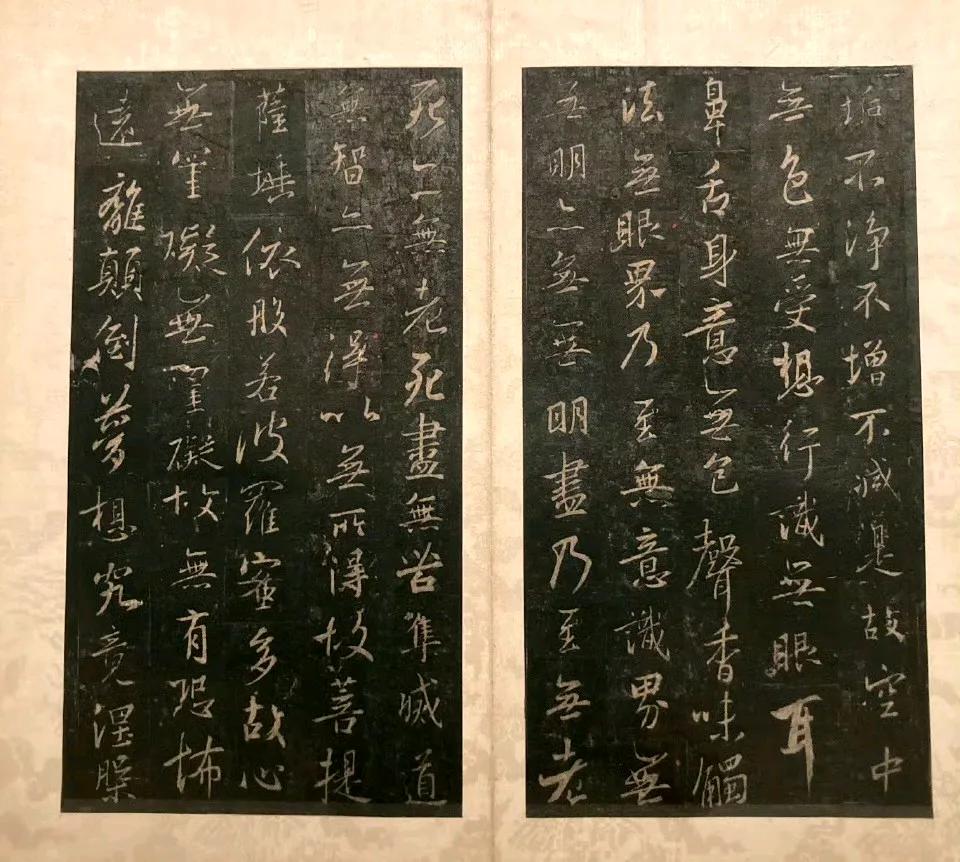 垢不淨不增不減是故空中
無色無受想行識無眼耳
鼻舌身意無色聲香味觸
法無眼界乃至無意識界無
無明亦無無明盡乃至無老
死亦無老死盡無苦集滅道
無智亦無得以無所得故菩提
薩埵依般若波羅蜜多故心
無罣礙無罣礙故無有恐怖
遠離顛倒夢想究竟涅槃